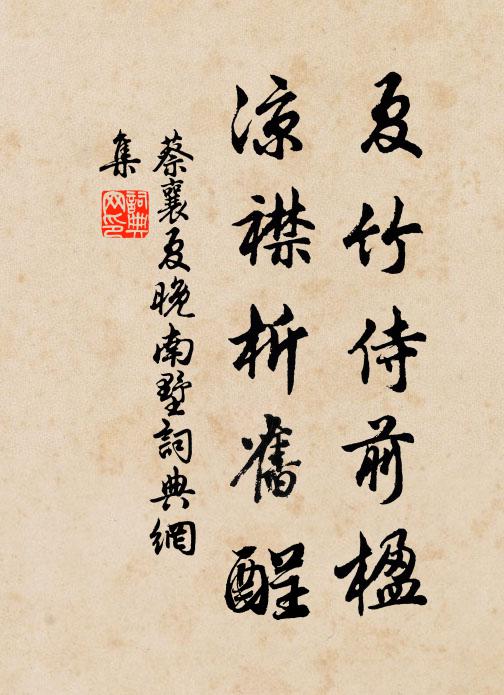 夏竹侍前楹
凉襟析舊酲
蔡襄夏晚南墅詞典網
集
詞典
网印